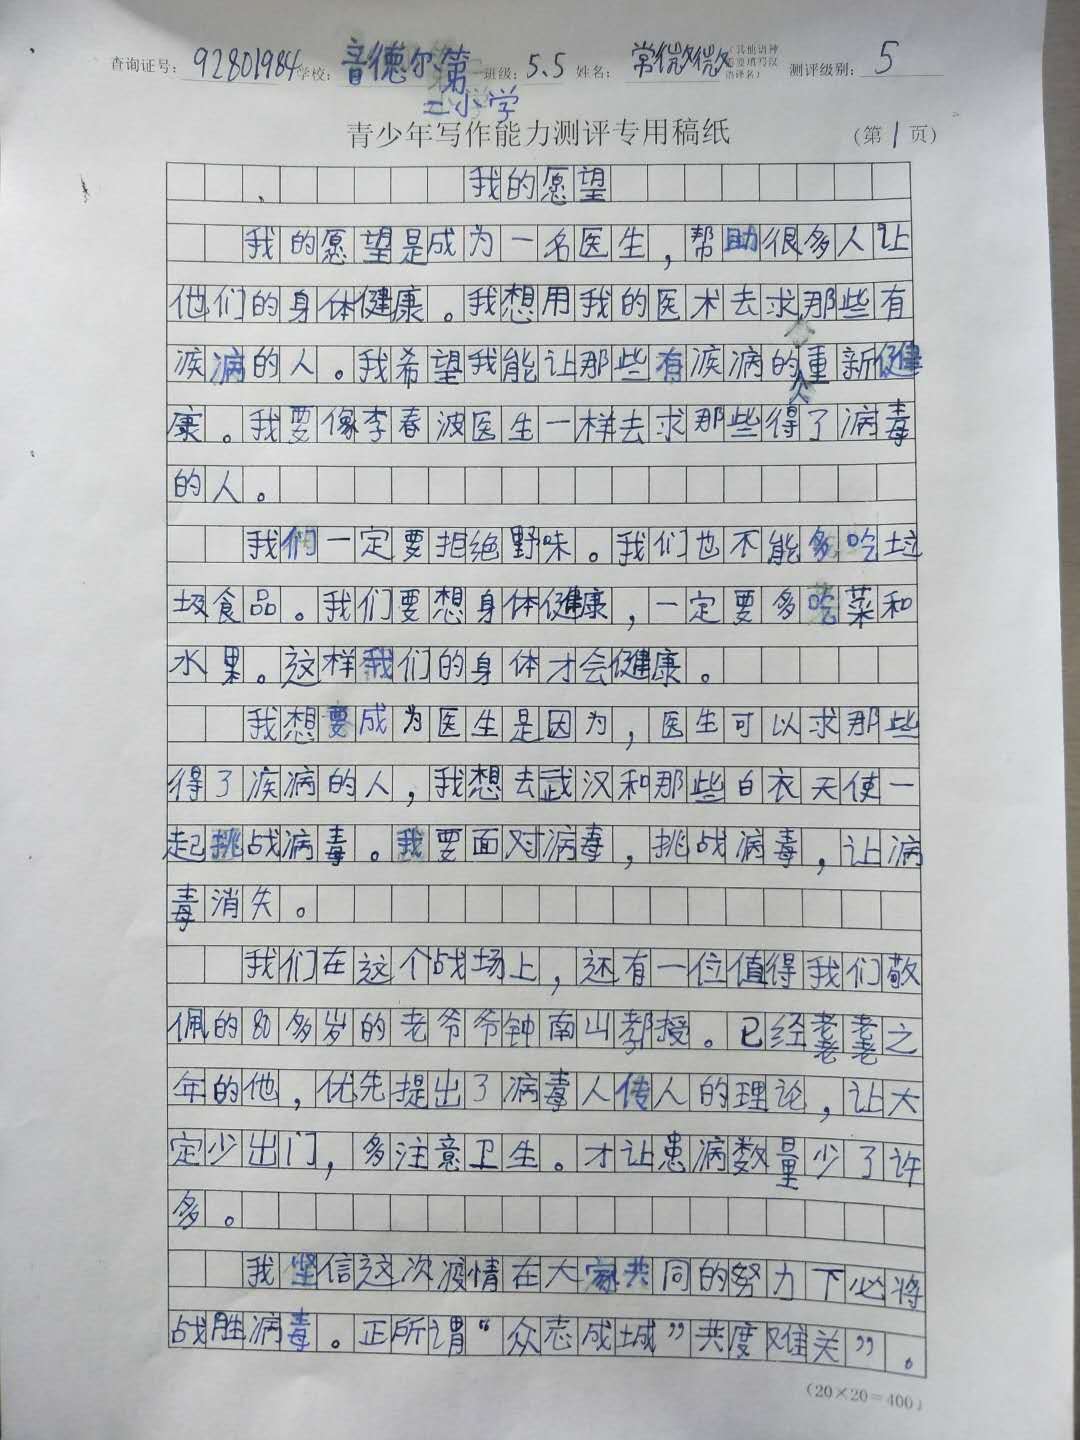 查询证号：92801984 学校：音德尔第二小学 班级：5.5 姓名：常微微 （其他语种需要填写汉语译名） 测评级别：5
青少年写作能力测评专用稿纸 （第1页）
我的愿望
我的愿望是成为一名医生，帮助很多人让
他们的身体健康。我想用我的医术去求那些有
疾病的人。我希望我能让那些有疾病的人重新健
康。我要像李春波医生一样去求那些得了病毒
的人。
我们一定要拒绝野味。我们也不能多吃垃
圾食品。我们要想身体健康，一定要多吃菜和
水果。这样我们的身体才会健康。
我想要成为医生是因为，医生可以求那些
得了疾病的人，我想去武汉和那些白衣天使一
起挑战病毒。我要面对病毒，挑战病毒，让病
毒消失。
我们在这个战场上，还有一位值得我们敬
佩的80多岁的老爷爷钟南山教授。已经耄耋之
年的他，优先提出了病毒人传人的理论，让大
定少出门，多注意卫生。才让患病数量少了许
多。
我坚信这次疫情在大家共同的努力下必将
战胜病毒。正所谓“众志成城”共度难关”。
（20×20=400）